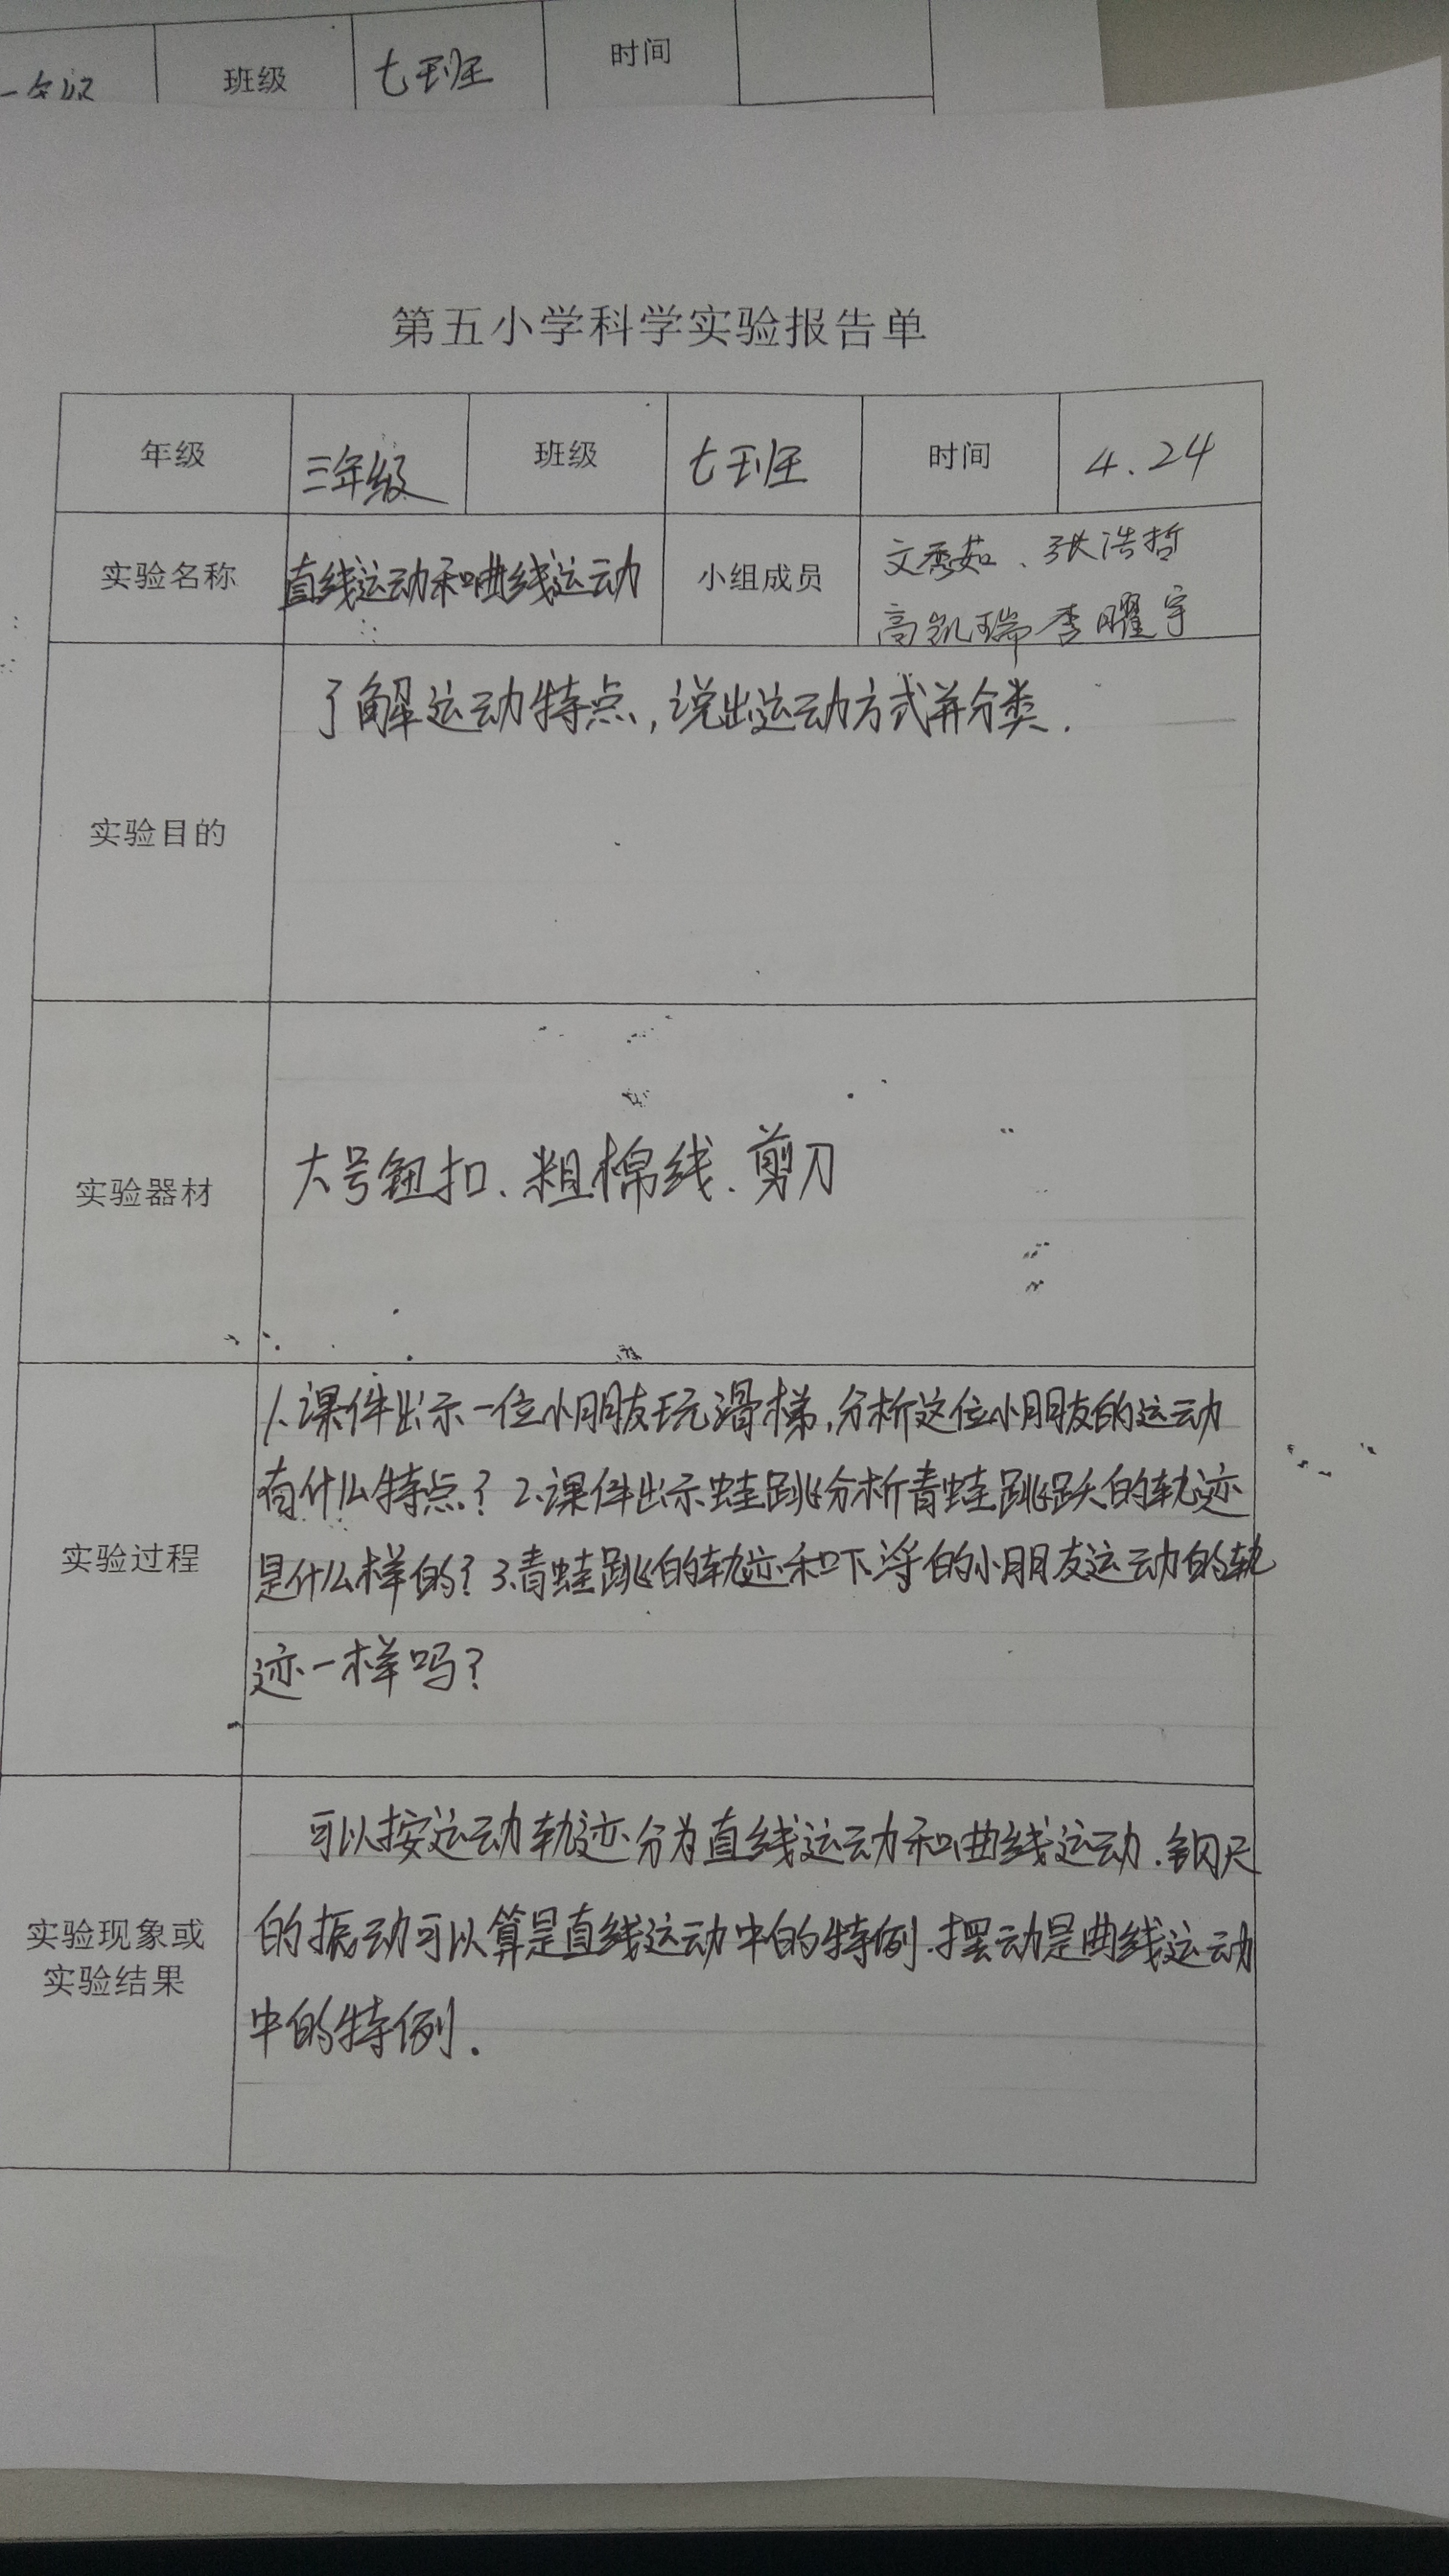 班级 七班 时间
第五小学科学实验报告单
年级 三年级 班级 七班 时间 4.24
实验名称 直线运动和曲线运动 小组成员 文秀茹、张浩哲
高凯瑞 李曜宇
了解运动特点,说出运动方式并分类.
实验目的
实验器材 大号钮扣、粗棉线、剪刀
1.课件出示一位小朋友玩滑梯,分析这位小朋友的运动
有什么特点? 2.课件出示蛙跳分析青蛙跳跃的轨迹
实验过程
是什么样的? 3.青蛙跳的轨迹和下滑的小朋友运动的轨
迹一样吗?
可以按运动轨迹分为直线运动和曲线运动.钢尺
实验现象或
实验结果
的振动可以算是直线运动中的特例.摆动是曲线运动
中的特例.